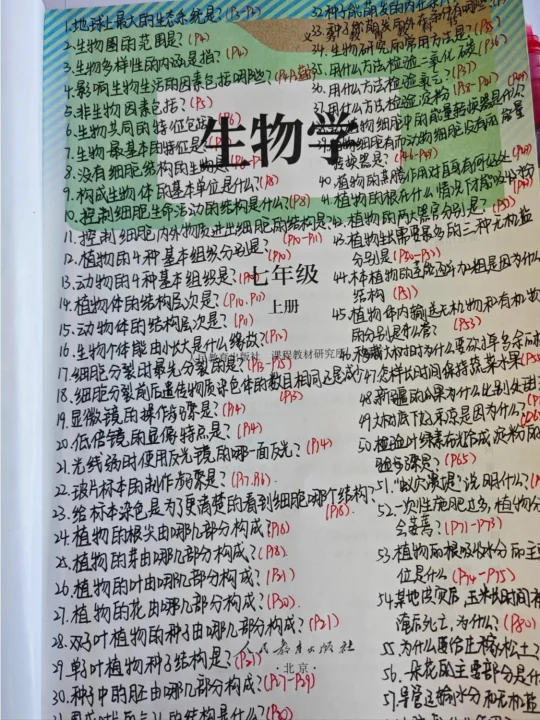 1.地球上最大的生态系统是?(P3-P2)
2.生物圈的范围是?(P4)
3.生物多样性的内涵是指?(P4)
4.影响生物生活的因素包括哪些?(P4
5.非生物因素包括?(P5)
6.生物共同的特征包括 (P6)
7.生物最基本的特征是
8.没有细胞结构的生物是
9.构成生物体的基本单位是什么?(P8)
10.控制细胞生命活动的结构是什么?(P8)
11.控制细胞内外物质进出细胞的结构是?
12.植物的4种基本组织分别是?(P10-P11)
13.动物的4种基本组织是?(P10)
14.植物体的结构层次是?(P10.P11)
15.动物体的结构层次是?(P11)
16.生物个体能由小长大是什么缘故?(P12)
17.细胞分裂时最先分裂的是?(P13-P15)
18.细胞分裂前后遗传物质染色体的数目相同还是减少?
(P13)
19.显微镜的操作步骤是?(P14)
20.低倍镜的显像特点是?(P14)
21.光线弱时使用反光镜的哪一面反光?(P14)
22.玻片标本的制作步骤是?(P7.P16)
23.给标本染色是为了更清楚的看到细胞哪个结构?
(P18)
24.植物的根尖由哪几部分构成?(P18)
25.植物的芽由哪几部分构成?(P18)
26.植物的叶由哪几部分构成?(P31)
27.植物的花由哪几部分构成?(P30)
28.双子叶植物的种子由哪几部分构成?(P31)
29.单子叶植物种子结构是?(P31)
30.种子中的胚由哪几部分构成?(P27-P29)
生物学
七年级
上册
人民教育出版社 课程教材研究所
人民教育出版社
·北京·
32.种子能萌发的内在条件有哪些?
33.种子能萌发的外在条件
34.生物研究的常用方法是?(P5)
35.用什么方法检验二氧化碳(P36)
36.用什么方法检验氧气?(P37)
37.用什么方法检验淀粉(P38-P01)
植物细胞中的能量转换器是什么?
植物细胞有而动物细胞没有的能量
转换器是?(P46-P49)
40.植物的蒸腾作用对自身有何益处
41.植物的根在什么情况下
42.植物的两大器官分别是?
43.植物生长需要最多的三种无机盐
分别是(P30-P33)
44.木本植物的茎能逐年加粗是因为什么
结构(P31)
45.植物体内输送无机物和有机物
的分别是什么管?(P33)
46.移栽大树时为什么要砍掉许多余
47.怎样长时间保持蔬菜水果(P55)
48.新疆的瓜果为什么比别处甜
49.大树底下好乘凉是因为什么?
50.检验叶绿素在光下合成淀粉的
验步骤?(P65)
51."
52.一次性施肥过多,植物
会萎蔫?(P71-P73)
53.植物的根吸收水分的主
位是什么(P74-P75)
54.某地皮灾后,玉米长时间
淹后死亡,为什么?(P80)
55.为什么要给庄稼松土?
56.一朵花的主要部分是什
57.导管运输水分和无机盐